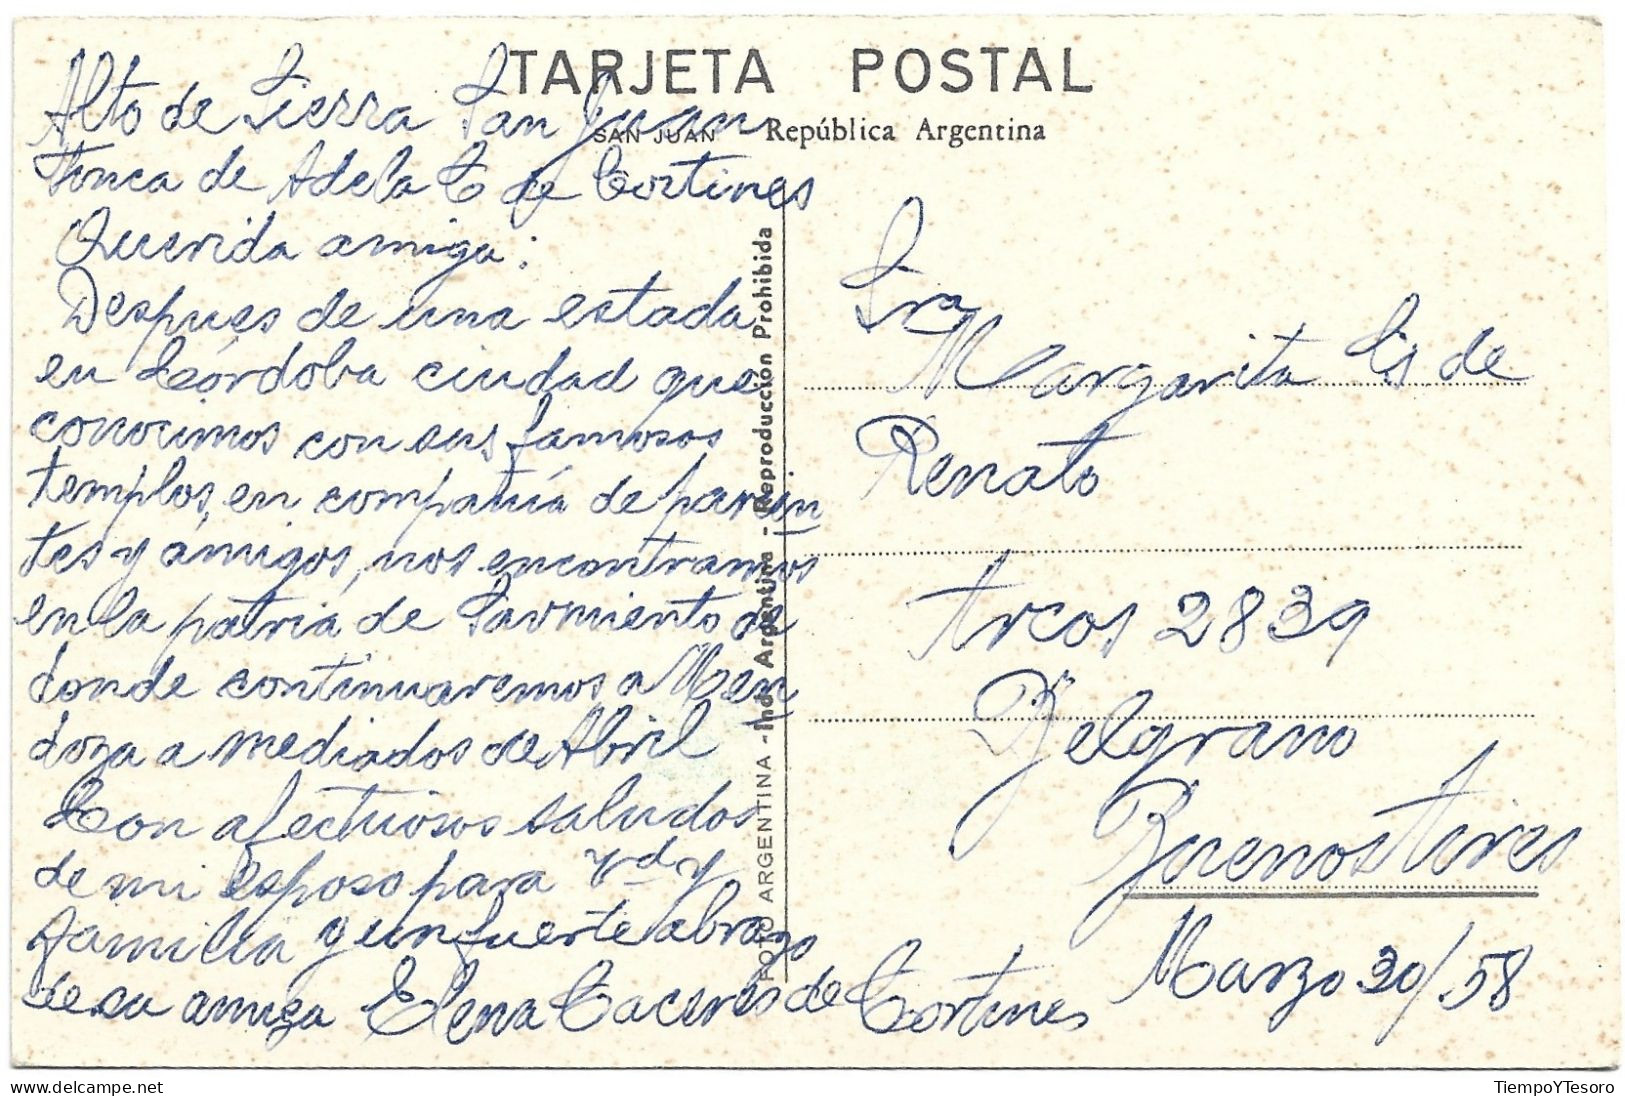 TARJETA POSTAL
SAN JUAN República Argentina
Alto de Sierra San Juan
Finca de Adela C de Cortines
Querida amiga:
Despues de una estada
en Córdoba ciudad que
conocimos con sus famosos
templos, en compañía de parien
tes y amigos, nos encontramos
en la patria de Sarmiento de
donde continuaremos a Men
doza a mediados de Abril
Con afectuosos saludos
de mi esposo para Vd y
familia y un fuerte abrazo
de su amiga Elena Caceres de Cortines
FOTO ARGENTINA - Ind Argentina - Reproduccion Prohibida
Sra
Margarita de
Renato
Arcos 2839
Belgrano
Buenos Aires
Marzo 30/58
TiempoYTesoro